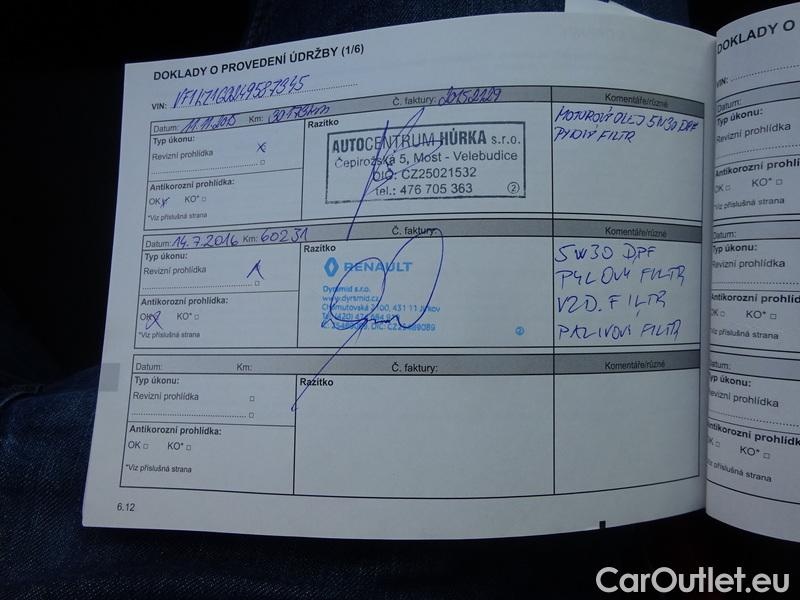 DOKLADY O PROVEDENÍ ÚDRŽBY (1/6)
VIN:
Datum: 11.11.2015 Km: 30173km Č. faktury: 20152229 Komentáře/různé
Typ úkonu:
Revizní prohlídka x
Antikorozní prohlídka:
OK KO* □
*Viz příslušná strana
Razítko
AUTOCENTRUM HŮRKA s.r.o.
Čepirožská 5, Most - Velebudice
DIČ: CZ25021532
tel.: 476 705 363 ②
MOTOROVÝ OLEJ 5W30 DPF
PYLOVÝ FILTR
Datum: 14.7.2016 Km: 60231 Č. faktury: Komentáře/různé
Typ úkonu:
Revizní prohlídka
Antikorozní prohlídka:
OK KO* □
*Viz příslušná strana
Razítko
RENAULT
Dyrsmid s.r.o.
www.dyrsmid.cz
Chomutovská 431 11 Jirkov
②
5W30 DPF
PYLOVÝ FILTR
VZD. FILTR
PALIVOVÝ FILTR
Datum: Km: Č. faktury: Komentáře/různé
Typ úkonu:
Revizní prohlídka □
□
Antikorozní prohlídka:
OK □ KO* □
*Viz příslušná strana
Razítko
6.12
DOKLADY O
VIN:
Datum:
Typ úkonu:
Revizní prohlídka
Antikorozní prohlídk
OK □ KO* □
*Viz příslušná strana
Datum:
Typ úkonu:
Revizní prohlídka
Antikorozní prohlídk
OK □ KO* □
*Viz příslušná strana
Datum:
Typ úkonu:
Revizní prohlídka
Antikorozní prohlídk
OK □ KO* □
*Viz příslušná strana
CarOutlet.eu